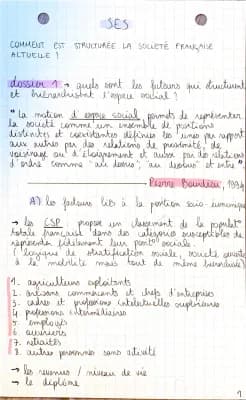 SES
COMMENT EST STRUCTURÉE LA SOCIÉTÉ FRANÇAISE
ACTUELLE ?
dossier 1 → quels sont les facteurs qui structurent
et hiérarchisent l'espace social ?
"La notion d'espace social permet de représenter
la société comme un ensemble de positions
distinctes et coexistantes définies les unes par rapport
aux autres par des relations de proximité, de
voisinage ou d'éloignement et aussi par des relations
d'ordre comme "au dessus", "au dessous" et "entre".
Pierre Bourdieu, 1994
A) les facteurs liés à la position socio-économique
→ les CSP : propose un classement de la population
totale française dans des catégories susceptibles de
représenter fidèlement leur position sociale.
(logique de stratification sociale, société ouverte
à la mobilité mais tout de même hiérarchisée)
1. agriculteurs exploitants
2. artisans commerçants et chefs d'entreprises
3. cadres et professions intellectuelles supérieures
4. professions intermédiaires
5. employés
6. ouvriers
7. retraités
8. autres personnes sans activité
→ les revenus / niveaux de vie
→ le diplôme
1